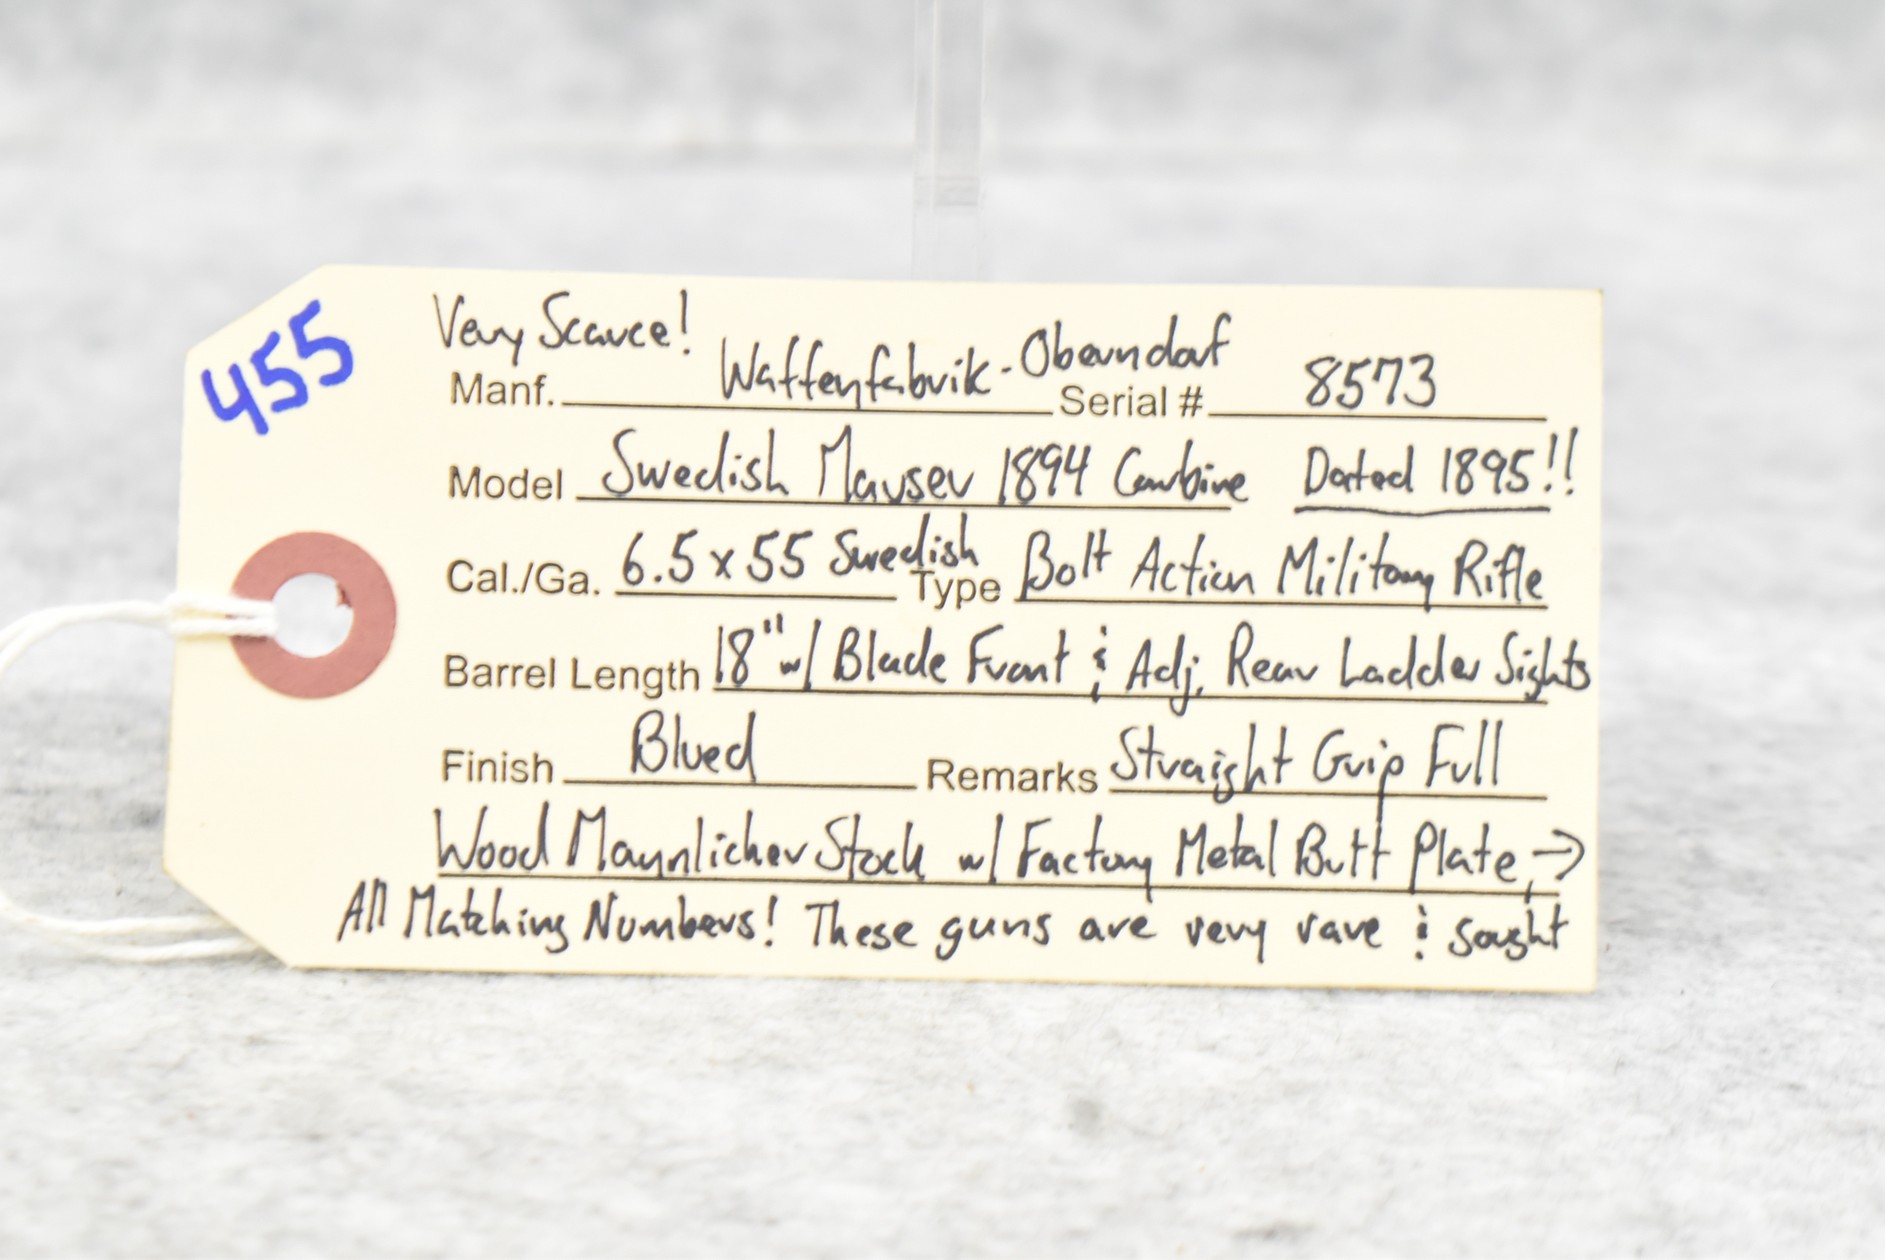 455
Very Scarce!
Manf. Waffenfabrik-Oberndorf Serial # 8573
Model Swedish Mauser 1894 Carbine Dated 1895!!
Cal./Ga. 6.5x55 Swedish Type Bolt Action Military Rifle
Barrel Length 18" w/ Blade Front & Adj. Rear Ladder Sights
Finish Blued Remarks Straight Grip Full
Wood Mannlicher Stock w/ Factory Metal Butt Plate, →
All Matching Numbers! These guns are very rare & sought